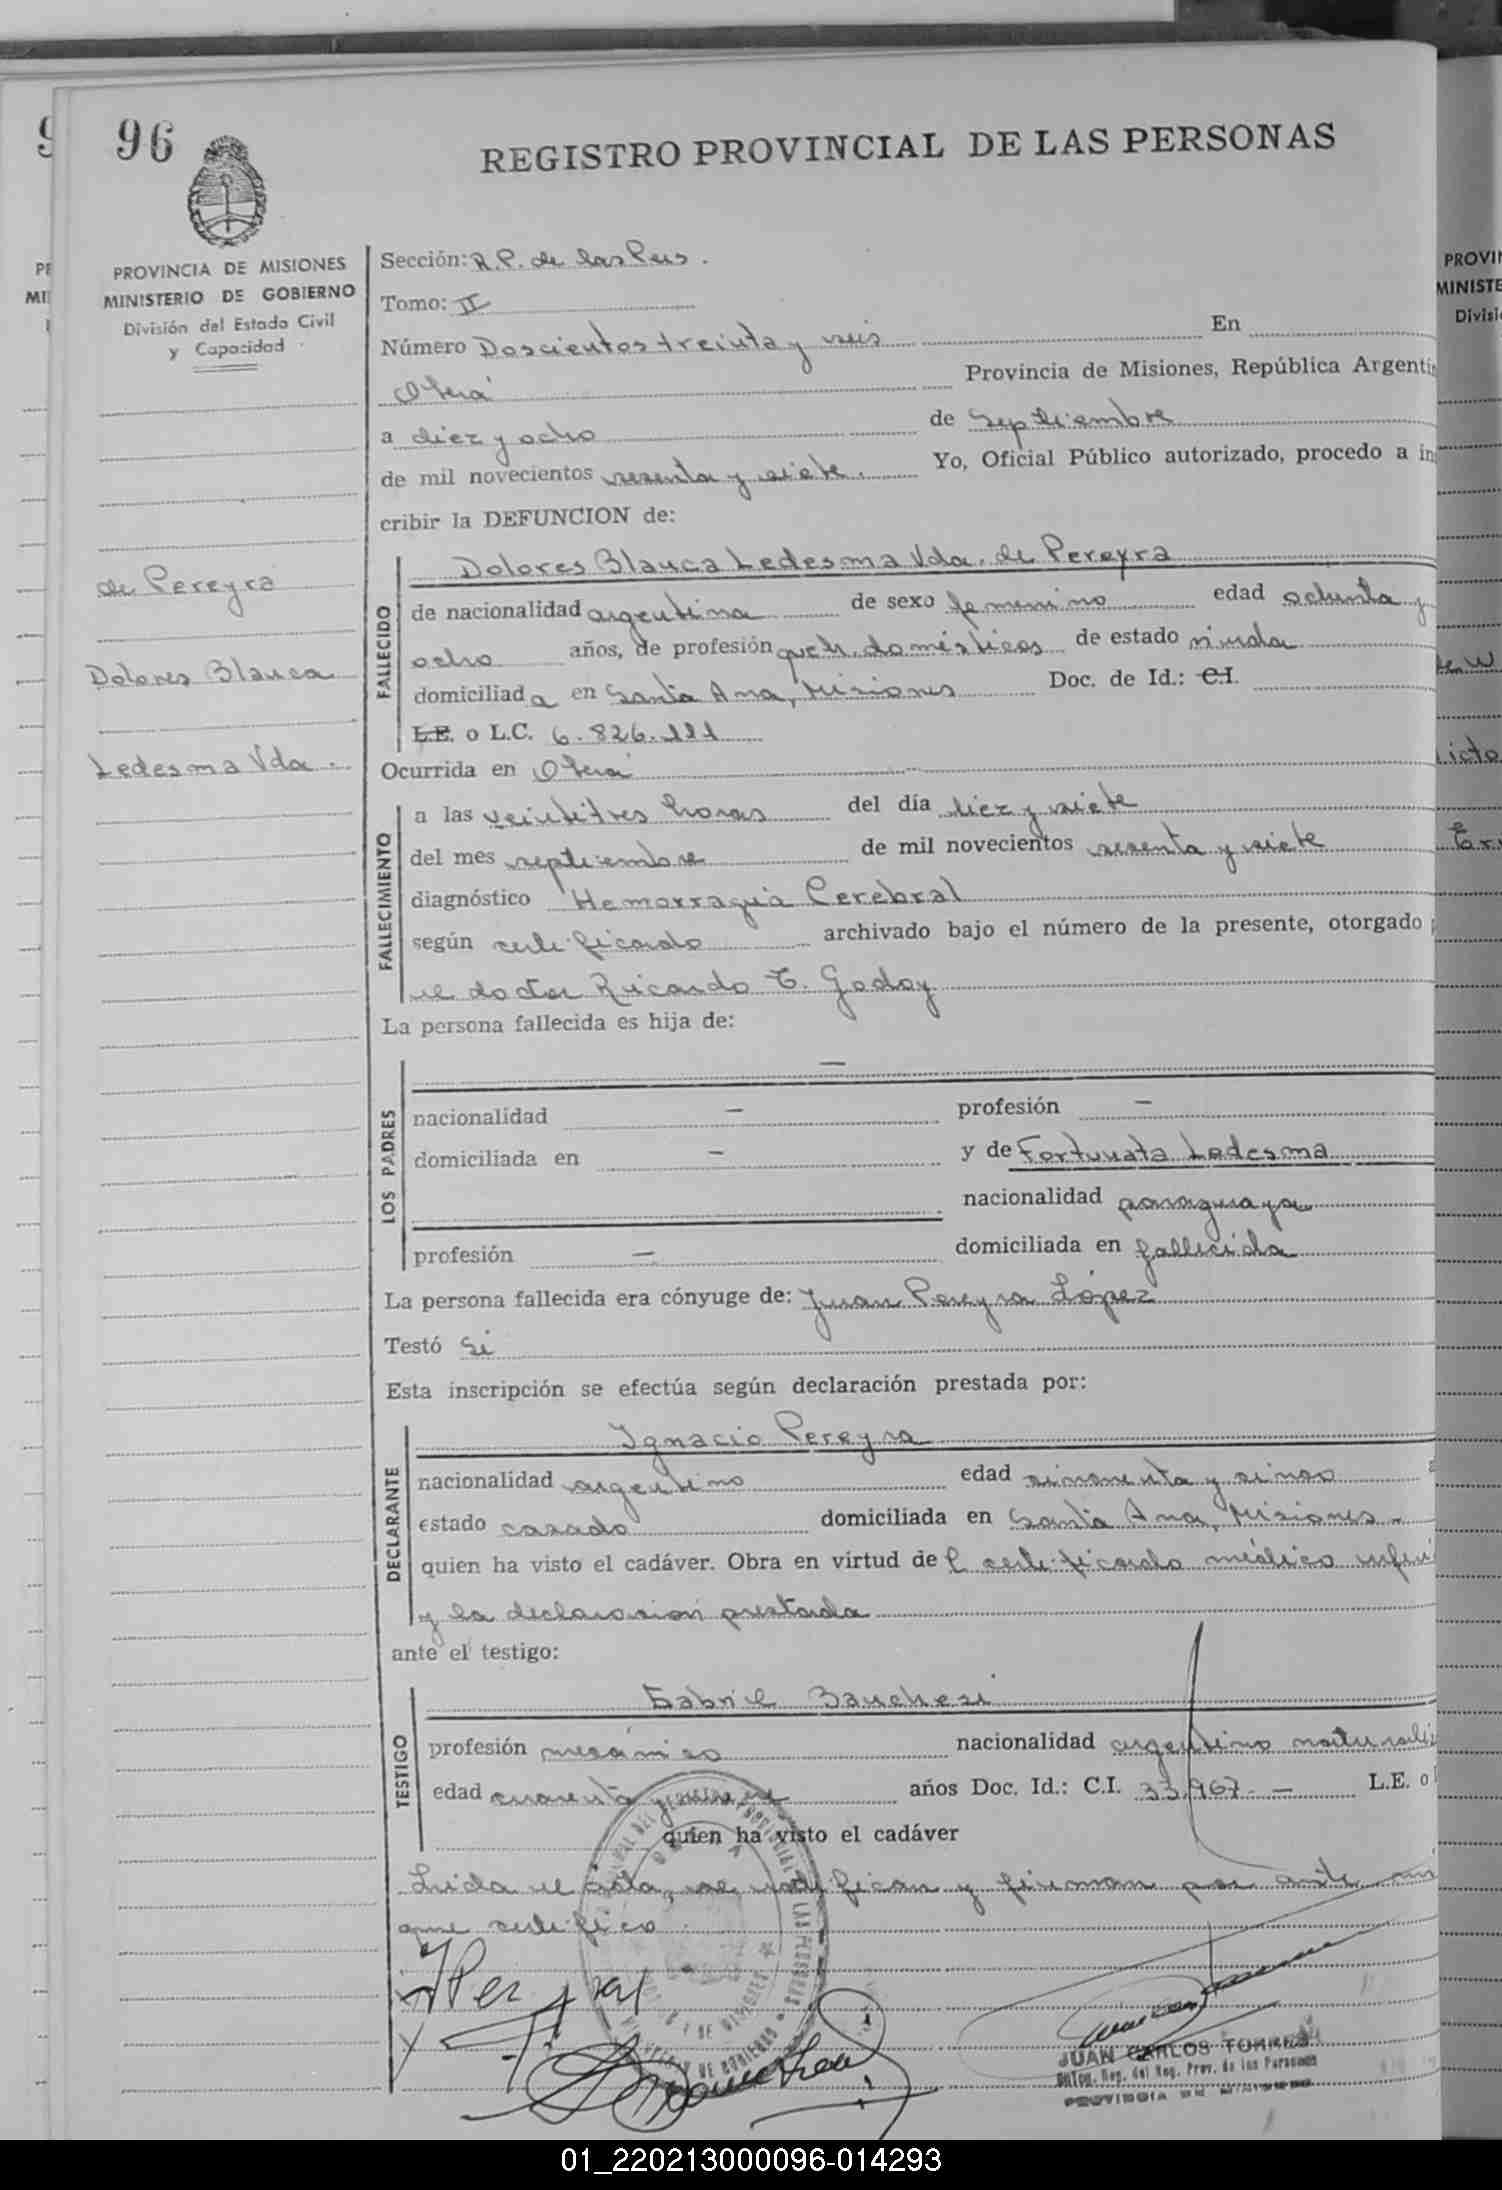 96
REGISTRO PROVINCIAL DE LAS PERSONAS
PROVINCIA DE MISIONES
MINISTERIO DE GOBIERNO
División del Estado Civil
y Capacidad
de Pereyra
Dolores Blanca
Ledesma Vda.
Sección: R.P. de las Pers.
Tomo: II
Número Doscientos treinta y seis En
Oberá Provincia de Misiones, República Argenti
a diez y ocho de Septiembre
de mil novecientos sesenta y siete. Yo, Oficial Público autorizado, procedo a in
cribir la DEFUNCION de:
FALLECIDO
Dolores Blanca Ledesma Vda. de Pereyra
de nacionalidad argentina de sexo femenino edad ochenta y
ocho años, de profesión queh. domésticos de estado viuda
domiciliada en Santa Ana, Misiones Doc. de Id.: C.I.
L.E. o L.C. 6.826.111
Ocurrida en Oberá
FALLECIMIENTO
a las veintitres horas del día diez y siete
del mes septiembre de mil novecientos sesenta y siete
diagnóstico Hemorragia Cerebral
según certificado archivado bajo el número de la presente, otorgado
el doctor Ricardo T. Godoy
La persona fallecida es hija de:
LOS PADRES
—
nacionalidad — profesión —
domiciliada en — y de Fortunata Ledesma
nacionalidad paraguaya
profesión — domiciliada en fallecida
La persona fallecida era cónyuge de: Juan Pereyra López
Testó Si
Esta inscripción se efectúa según declaración prestada por:
DECLARANTE
Ignacio Pereyra
nacionalidad argentino edad cincuenta y cinco
estado casado domiciliada en Santa Ana, Misiones.
quien ha visto el cadáver. Obra en virtud del certificado médico
y la declaración prestada
ante el testigo:
TESTIGO
Gabriel
profesión mecánico nacionalidad argentino naturali
edad cuarenta y años Doc. Id.: C.I. 33.967 — L.E. o
quien ha visto el cadáver
Leida el acta, se ratifican y firman por ante mí
que certifico.
JUAN CARLOS TORRES
Reg. del Reg. Prov. de las Personas
PROVINCIA DE MISIONES
01_220213000096-014293